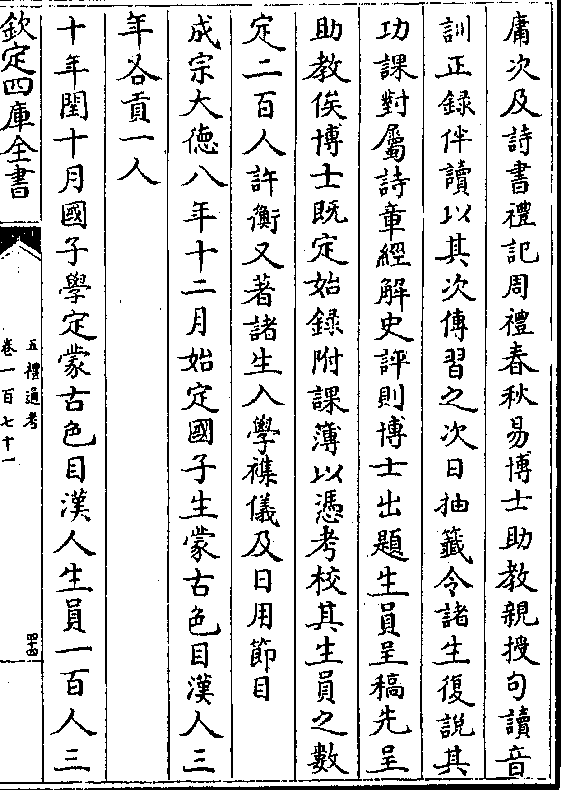 庸次及詩書禮記周禮春秋易博士助教親授句讀音
訓正録伴讀以其次傳習之次日抽籤令諸生復說其
功課對屬詩章經解史評則博士出題生員呈稿先呈
助教俟博士既定始録附課簿以憑考校其生員之數
定二百人許衡又著諸生入學襍儀及日用節目
成宗大德八年十二月始定國子生蒙古色目漢人三
年各貢一人
十年閏十月國子學定蒙古色目漢人生員一百人三
欽定四庫全書
五禮通考
卷一百七十一